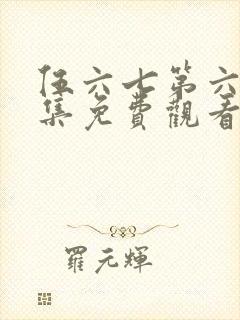 伍六七第六
集免費觀看
羅元輝